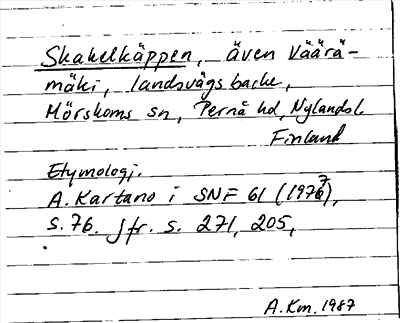 Skakelkäppen, även Väärä-
mäki, landsvägsbacke,
Mörskoms sn, Pernå hd, Nylandsl.
Finland
Etymologi.
A. Kartano i SNF 61 (1977),
s. 76. Jfr. s. 271, 205,
A.Km. 1987